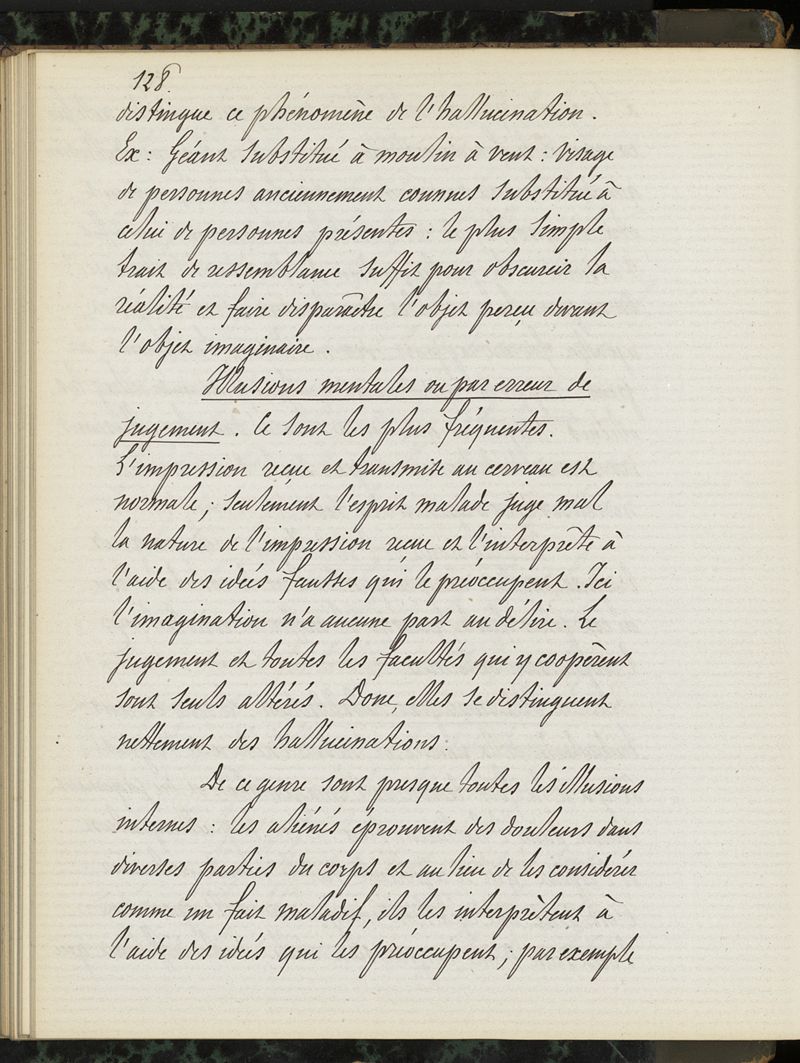 128
distingue ce phénomène de l'hallucination.
Ex : Géant substitué à moulin à vent : visage
de personnes anciennement connues substitué à
celui de personnes présentes : le plus simple
trait de ressemblance suffit pour obscurcir la
réalité et faire disparaître l'objet perçu devant
l'objet imaginaire.
Illusions mentales ou par erreur de
jugement. Ce sont les plus fréquentes.
L'impression reçue et transmise au cerveau est
normale ; seulement l'esprit malade juge mal
la nature de l'impression reçue et l'interprète à
l'aide des idées fausses qui le préoccupent. Ici
l'imagination n'a aucune part au délire. Le
jugement et toutes les facultés qui y coopèrent
sont seuls altérés. Donc, elles se distinguent
nettement des hallucinations.
De ce genre sont presque toutes les illusions
internes : les aliénés éprouvent des douleurs dans
diverses parties du corps et au lieu de les considérer
comme un fait maladif, ils les interprètent à
l'aide des idées qui les préoccupent ; par exemple